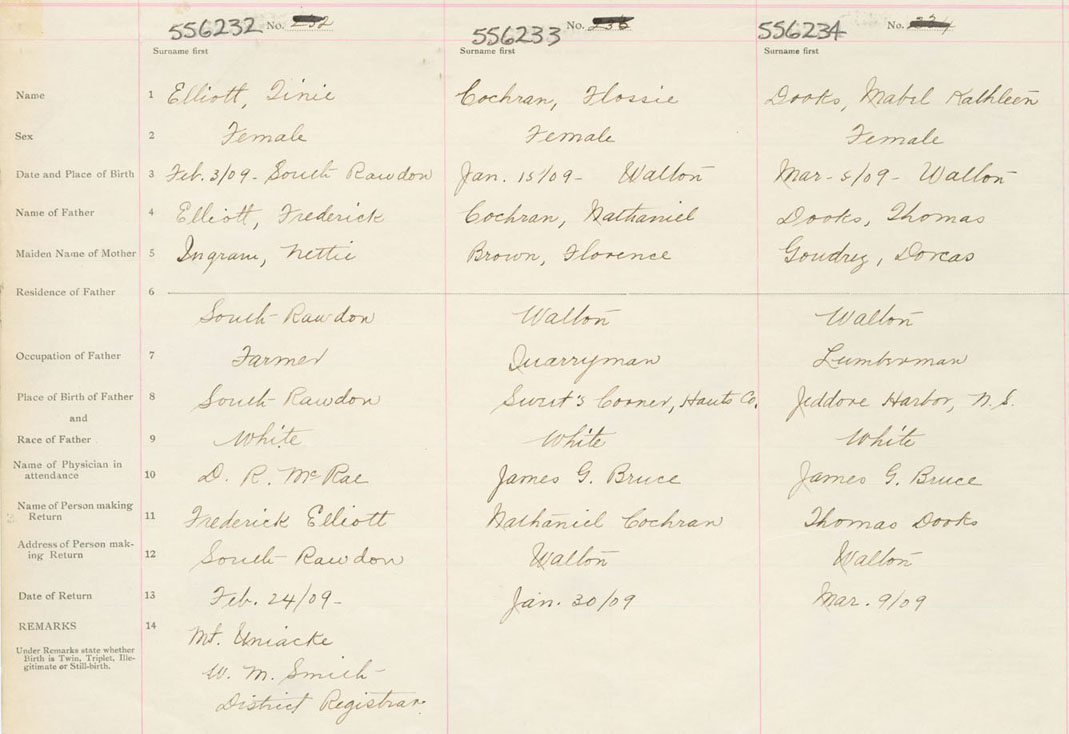 556232 No. 232 556233 No. 233 556234 No. 234
Surname first Surname first Surname first
Name 1 Elliott, Tinie Cochran, Flossie Dooks, Mabel Kathleen
Sex 2 Female Female Female
Date and Place of Birth 3 Feb. 3/09 - South Rawdon Jan. 15/09 - Walton Mar - 5/09 - Walton
Name of Father 4 Elliott, Frederick Cochran, Nathaniel Dooks, Thomas
Maiden Name of Mother 5 Ingram, Nettie Brown, Florence Goudrey, Dorcas
Residence of Father 6
South Rawdon Walton Walton
Occupation of Father 7 Farmer Quarryman Lumberman
Place of Birth of Father 8 South Rawdon Corner, Hants Co. Jeddore Harbor, N.S.
and
Race of Father 9 White White White
Name of Physician in
attendance 10 D. R. McRae James G. Bruce James G. Bruce
Name of Person making
Return 11 Frederick Elliott Nathaniel Cochran Thomas Dooks
Address of Person mak-
ing Return 12 South Rawdon Walton Walton
Date of Return 13 Feb. 24/09 - Jan. 30/09 Mar. 9/09
REMARKS 14 Mt. Uniacke
Under Remarks state whether
Birth is Twin, Triplet, Ille-
gitimate or Still-birth.
W. M. Smith
District Registrar